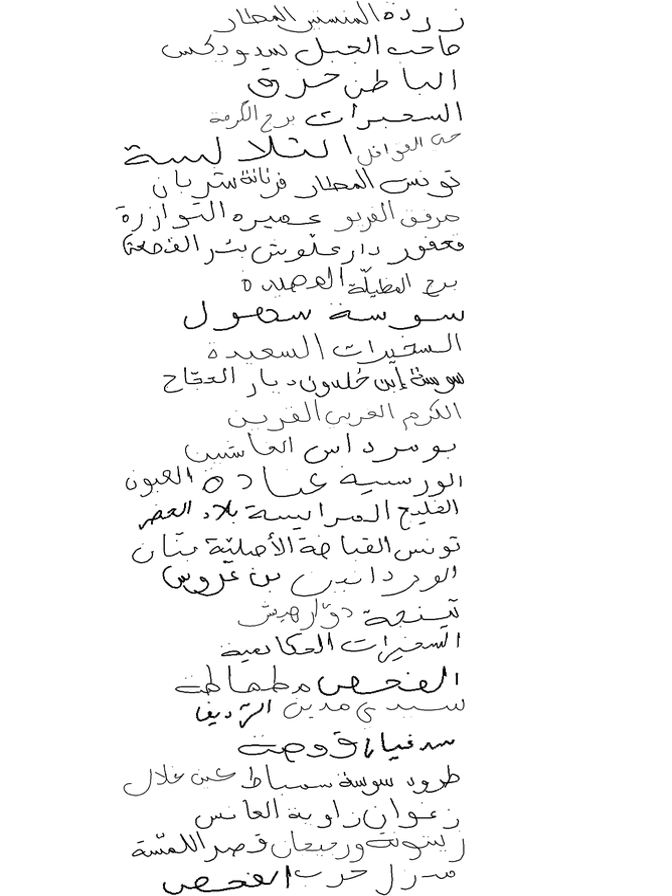 زردة المنستير المطار
صاحب الجبل سدودكس
الباطن حرق
السعيرات برج الكرمة
حي القوافل الثلالسة
تونس المطار فرنانة شربان
مرفق الفريو عميره التوازرة
قعفور دار علوش بئر القصعة
برج الطيلة العصيدة
سوسة سهلول
السخيرات السعيدة
سوسة إبن خلدون ديار الحجاج
الكرم الغربي القرين
بومرداس العاشين
الورسية عبادة العيون
الخليج المرايسة بلاد الحضر
تونس القباضة الأصلية بتان
الوردانين بن عروس
تينجة دوار هيش
السخيرات الحكايمية
الفحص مطماطة
سيدي مدين الرديف
سدغيان قوصة
طرود سوسة سمباط عين غلال
زغوان زاوية العانس
زيتونة ورجيعان قصر اللمسة
منزل حرب الفحص